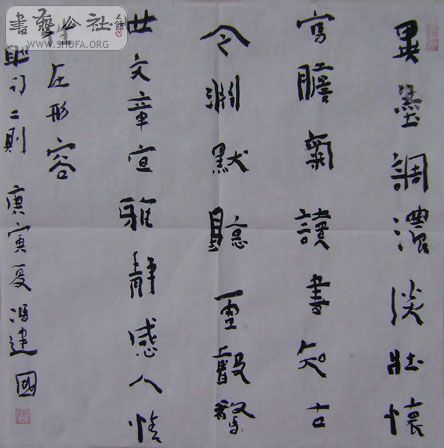 墨調濃淡壯懷
寫膽氣讀書知古
今淵默聽
世文章宣雅靜感人情
在形容
聯句二則 庚寅夏 馮建國
書法公社
WWW.SHUFA.ORG